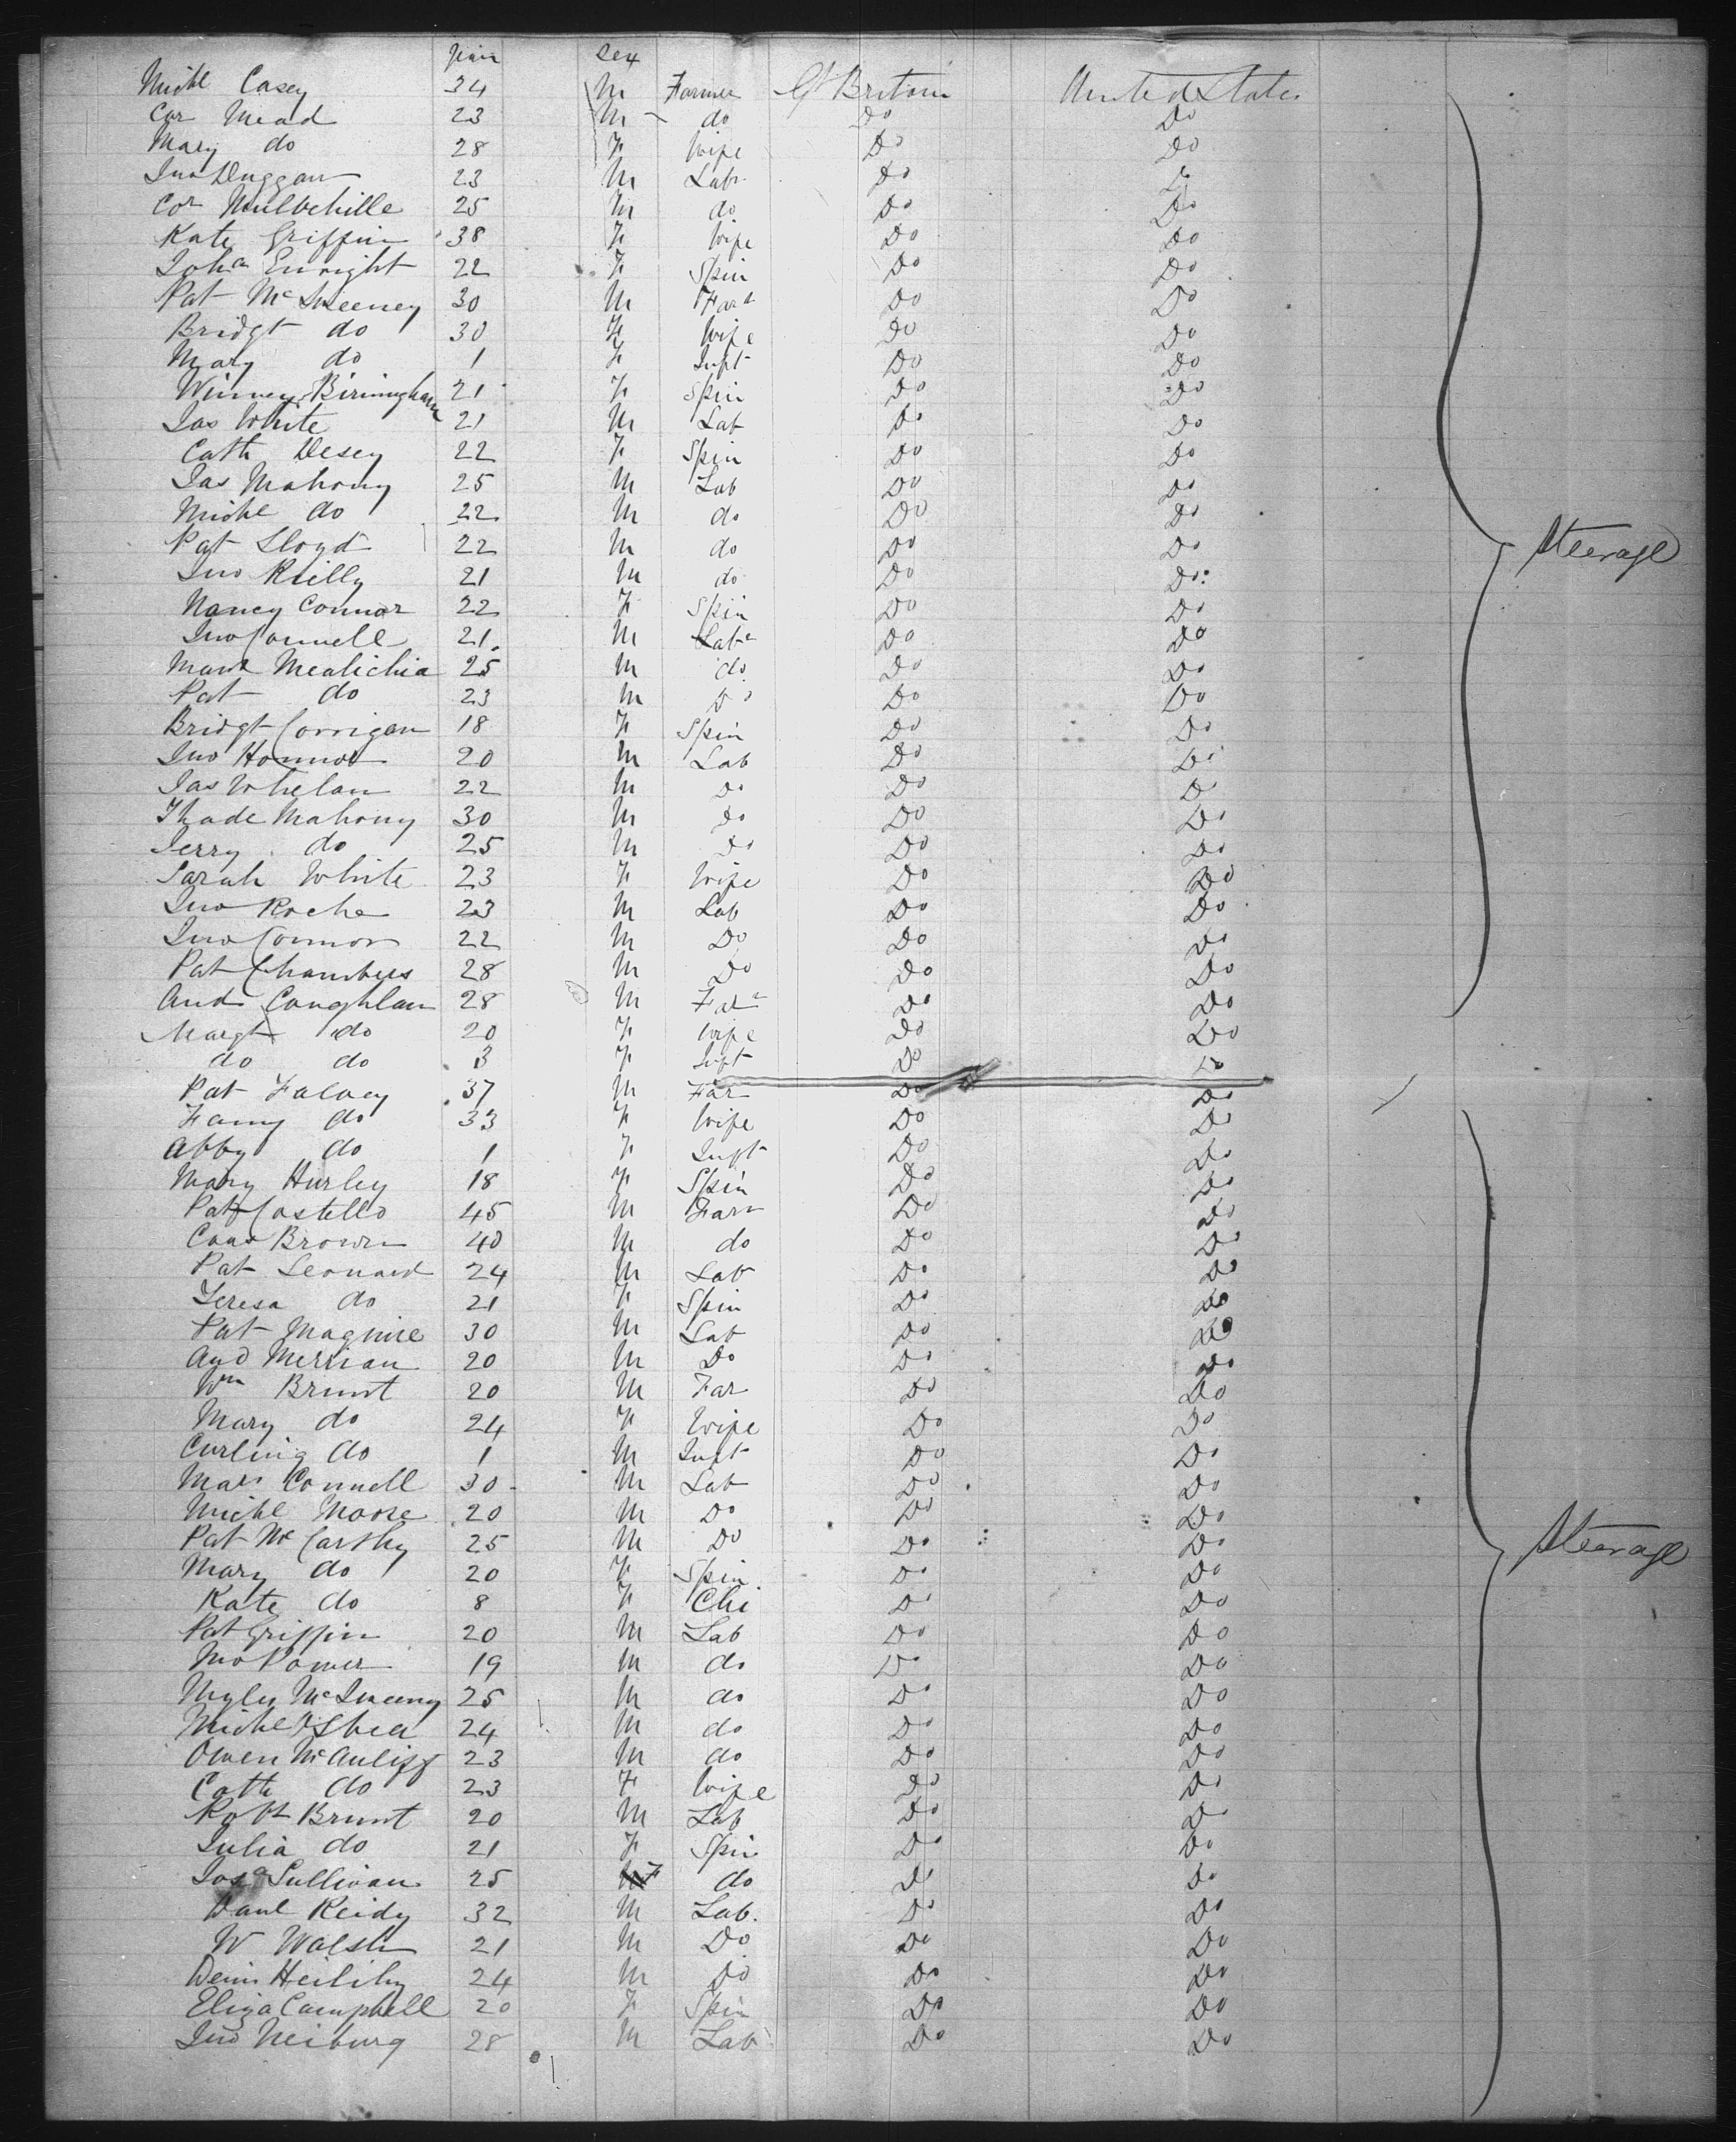 Years Sex
Michl Casey 34 M Farmer Gt Britain United States
Cor Mead 23 M do Do Do
Mary do 28 F Wife Do Do
Jno Duggan 23 M Labr Do Do
Cor Mulvehille 25 M do Do Do
Kate Griffin 38 F Wife Do Do
Joha Enright 22 F Spin Do Do
Pat McSweeney 30 M Farr Do Do
Bridgt do 30 F Wife Do Do
Mary do 1 F Inft Do Do
Winney Birmingham 21 F Spin Do Do
Jas White 21 M Lab Do Do
Cath Desey 22 F Spin Do Do
Jas Mahony 25 M Lab Do Do
Michl do 22 M do Do Do
Pat Lloyd 22 M do Do Do
Steerage
Jno Reilly 21 M do Do Do
Nancy Connor 22 F Spin Do Do
Jno Connell 21 M Labr Do Do
Mark Mealichia 25 M do Do Do
Pat do 23 M Do Do Do
Bridgt Corrigan 18 F Spin Do Do
Jno Honnor 20 M Lab Do Do
Jas Whelan 22 M Do Do Do
Thade Mahony 30 M Do Do Do
Jerry do 25 M Do Do Do
Sarah White 23 F Wife Do Do
Jno Roche 23 M Lab Do Do
Jno Connor 22 M Do Do Do
Pat Chambers 28 M Do Do Do
And Coughlan 28 M Far Do Do
Margt do 20 F Wife Do Do
do do 3 F Inft Do Do
Pat Falvey 37 M Far Do Do
Fanny do 33 F Wife Do Do
Abby do 1 F Inft Do Do
Mary Hurley 18 F Spin Do Do
Pat Costello 45 M Farr Do Do
Brown 40 M do Do Do
Pat Leonard 24 M Lab Do Do
Teresa do 21 F Spin Do Do
Pat Maguire 30 M Lab Do Do
And Merrian 20 M Do Do Do
Wm Brunt 20 M Far Do Do
Mary do 24 F Wife Do Do
Curling do 1 M Inft Do Do
Connell 30 M Lab Do Do
Michl Moore 20 M Do Do Do
Pat McCarthy 25 M Do Do Do
Steerage
Mary do 20 F Spin Do Do
Kate do 8 F Chi Do Do
Pat Griffin 20 M Lab Do Do
Power 19 M do Do Do
Myles McSweeny 25 M do Do Do
Michl OShea 24 M do Do Do
Owen McAuliff 23 M do Do Do
Cath do 23 F Wife Do Do
Robt Brunt 20 M Lab Do Do
Julia do 21 F Spin Do Do
Josa Sullivan 25 F do Do Do
Danl Reidy 32 M Lab. Do Do
W Walsh 21 M Do Do Do
Denis Heilihy 24 M Do Do Do
Eliza Campbell 20 F Spin Do Do
Jno Neiburg 28 M Lab Do Do